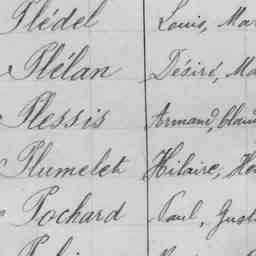 Plédel Louis, Mar
Plélan Désiré, Ma
Plessis Armand, Claud
Plumelet Hilaire, He
Pochard Paul, Gust